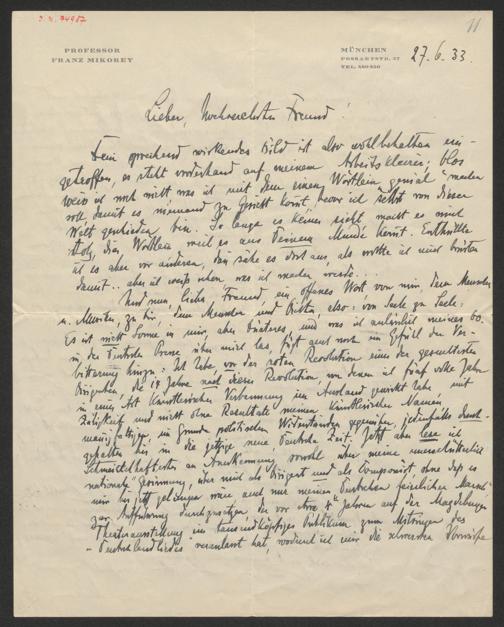 J. N. 94982
11
PROFESSOR
FRANZ MIKOREY
MÜNCHEN
POSSARTSTR. 37
TEL.
27.6.33.
Lieber, Hochverehrter Freund!
Dein sprechend wirkendes Bild ist also wohlbehalten ein-
getroffen, es steht vorderhand auf meinem Arbeitsklavier; blos
weiss ich noch nicht was ich mit dem einen Wörtlein "genial" machen
soll, damit es niemand zu Gesicht kommt bevor ich selbst von dieser
Welt geschieden bin. So lange es keiner sieht, macht es mich
stolz, dies Wörtlein weil es aus Deinem Munde kommt. Enthüllte
ich es aber vor anderen, dann sähe es dort aus, als wollte ich mich brüsten
damit... aber ich weiss schon was ich machen werde...
Und nun, liebster Freund, ein offenes Wort von mir, dem Menschen
u. Musiker, zu Dir, dem Menschen und also: von Seele zu Seele:
Es ist nicht Sonne in mir, aber und was ich anlässlich meines 60.
in der Deutschen Presse über mich las, fügt auch noch ein Gefühl der Ver-
bitterung hinzu: Ich habe, vor der roten Revolution einer der
Dirigenten, die 14 Jahre nach dieser Revolution, von denen ich fünf volle Jahre
in einer Art künstlerischer Verbannung im Ausland gewirkt habe mit
Zähigkeit und nicht ohne Resultate meinen künstlerischen Namen
mannigfaltigen, im Grunde politischen Widerständen gegenüber, jedenfalls durch-
gehalten bis in die jetzige neue Deutsche Zeit. Jetzt aber lese ich
Schmeichelhaftesten an Anerkennung sowohl über meine unerschütterlich
nationale Gesinnung, über mich als Dirigent und als Componist ohne dass es
mir bis jetzt gelungen wäre auch nur meinen Deutschen feierlichen Marsch
zur Aufführung durchzusetzen der vor etwa Jahren auf der Magdeburger
Theaterausstellung ein tausendköpfiges Publikum zum Mitsingen des
"Deutschlandliedes" veranlasst hat, wodurch ich mir die schwersten Vorwürfe